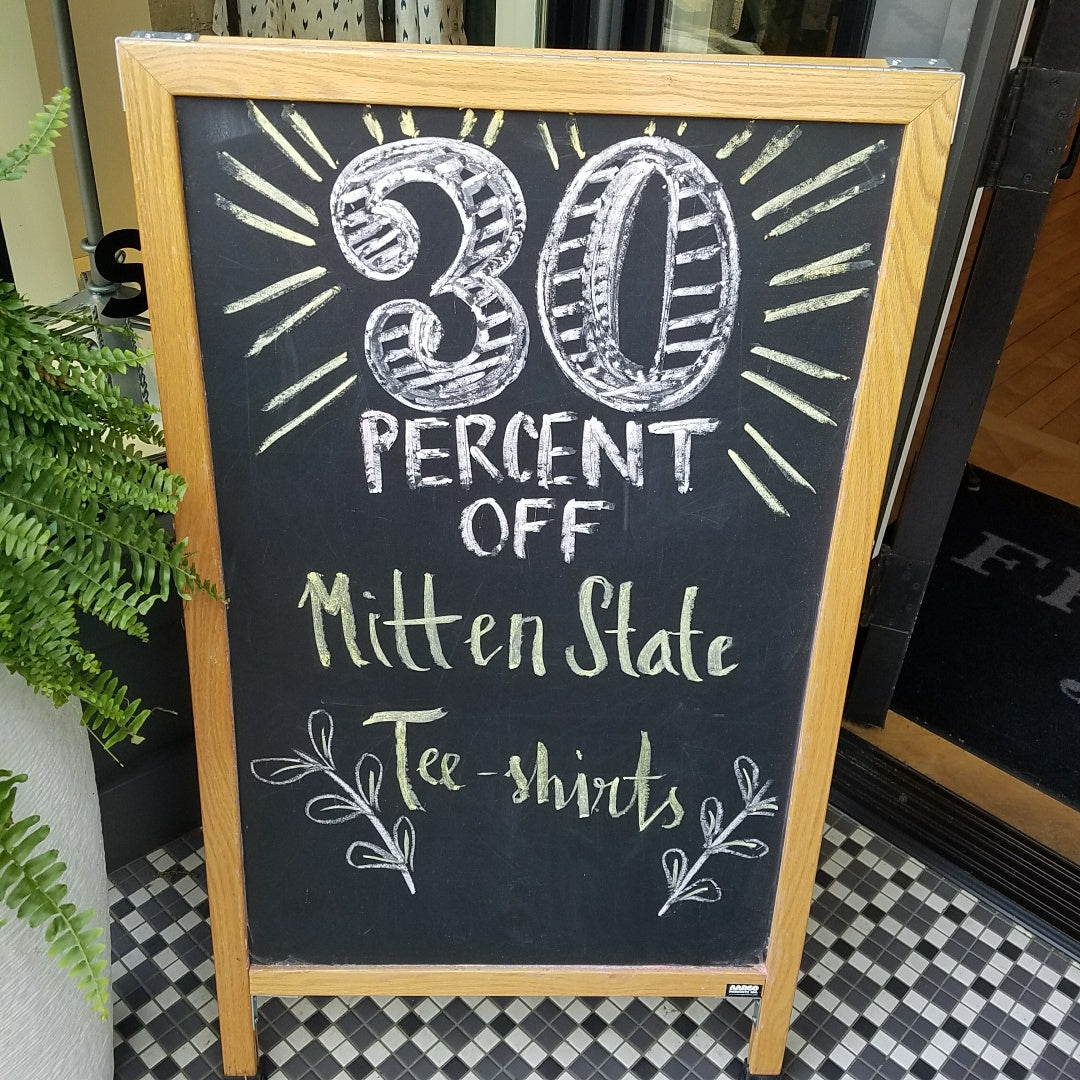 30
PERCENT
OFF
Mitten State
Tee-shirts
AARCO